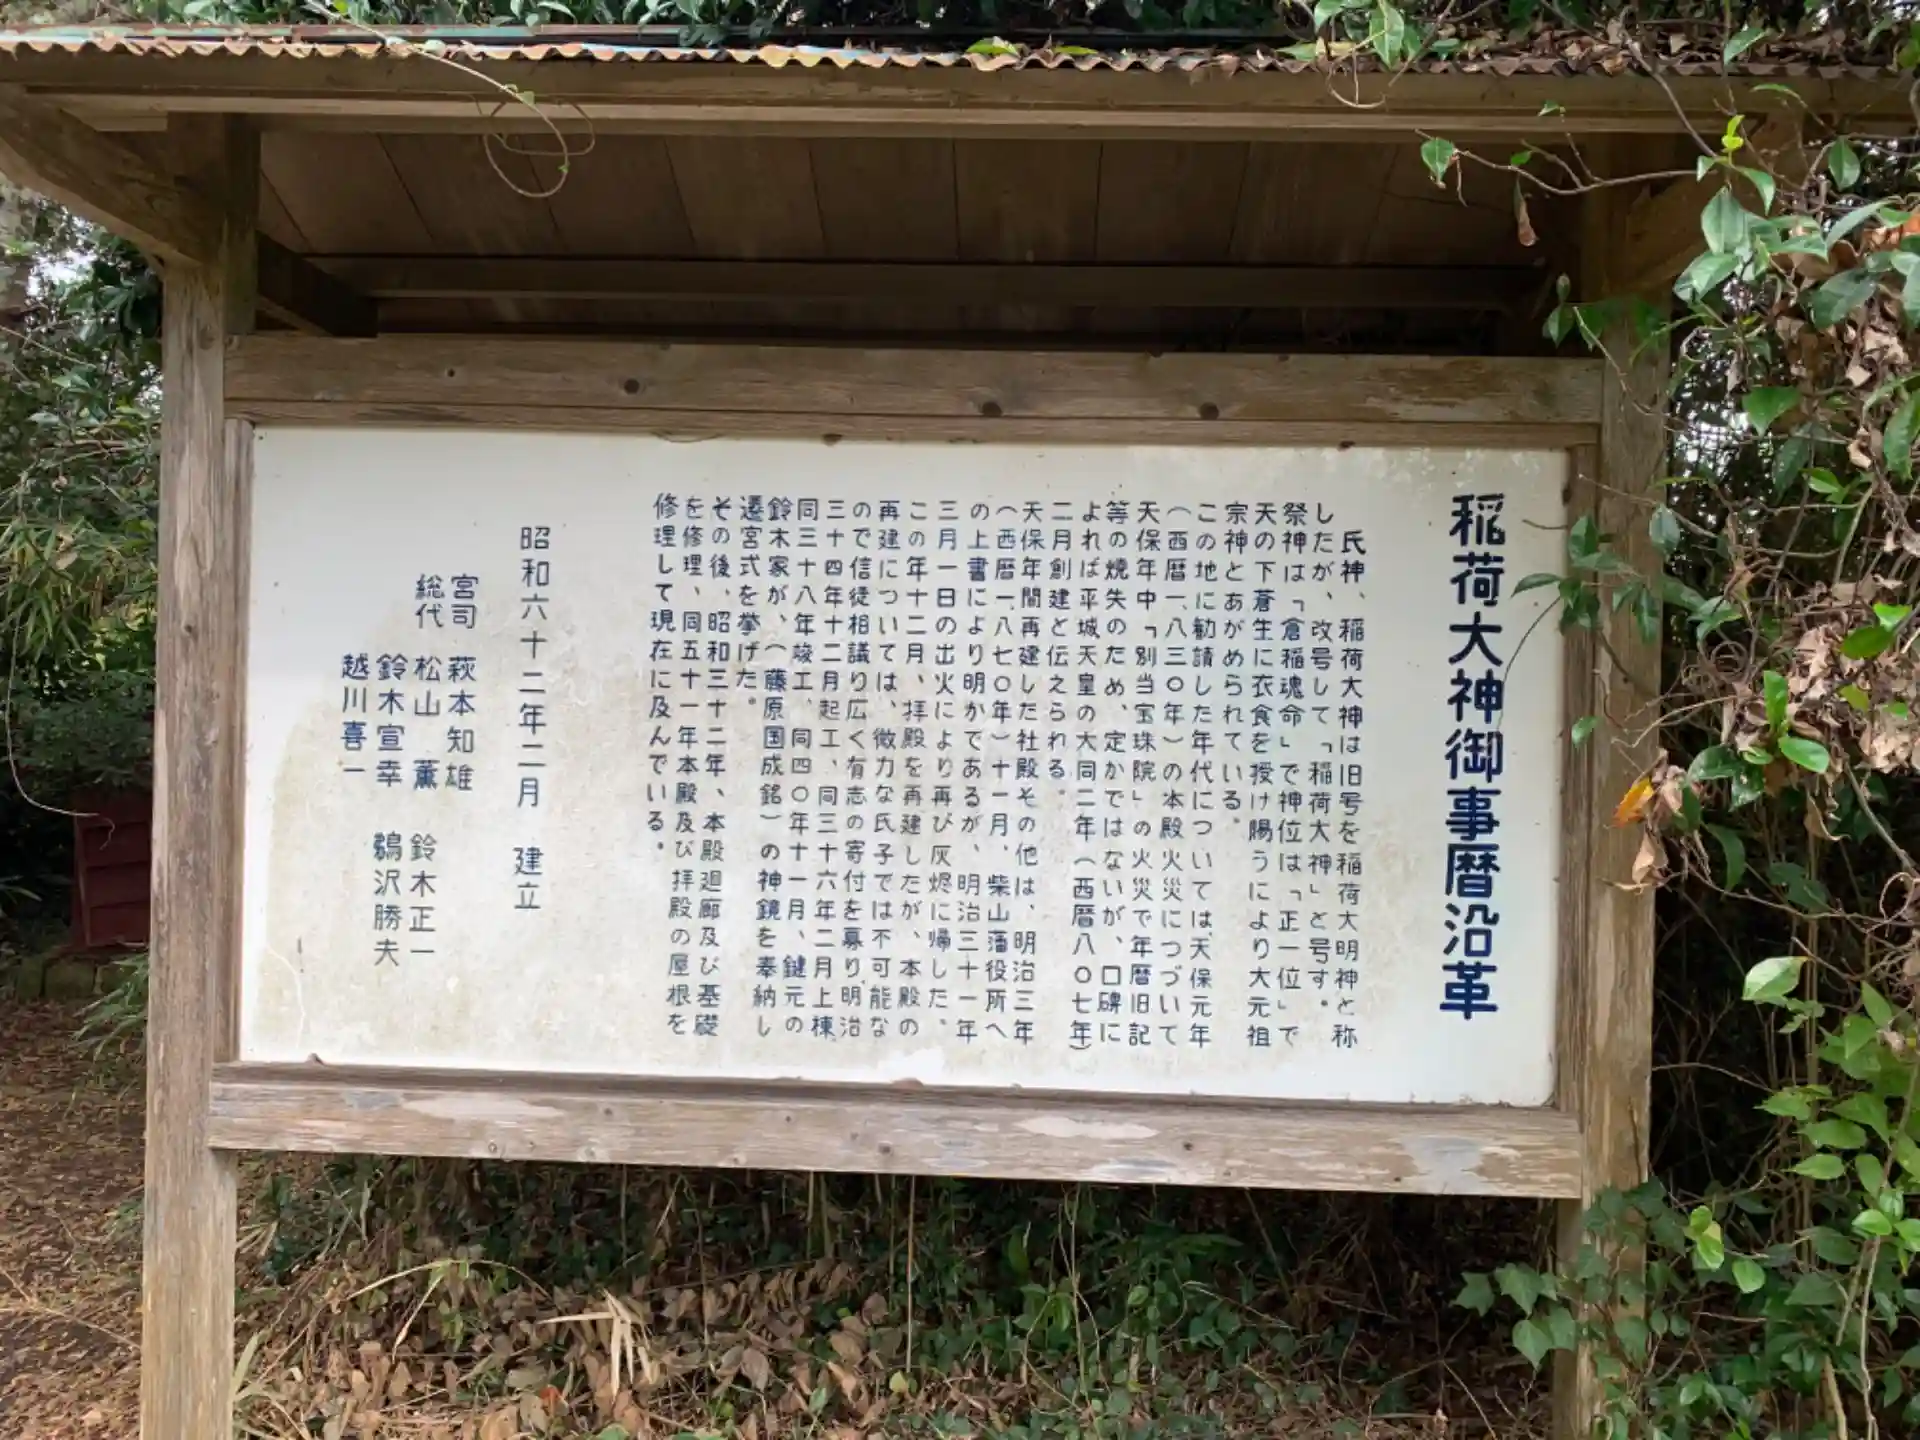 稲荷大神御事暦沿革
氏神、稲荷大神は旧号を稲荷大明神と称
したが、改号して「稲荷大神」と号す。
祭神は「倉稲魂命」で神位は「正一位」で
天の下蒼生に衣食を授け賜うにより大元祖
宗神とあがめられている。
この地に勧請した年代については、天保元年
（西暦一、八三〇年）の本殿火災につづいて
天保年中「別当宝珠院」の火災で年暦旧記
等の焼失のため、定かではないが、口碑に
よれば平城天皇の大同二年（西暦八〇七年）
二月創建と伝えられる。
天保年間再建した社殿その他は、明治三年
（西暦一、八七〇年）十一月、柴山藩役所へ
の上書により明かであるが、明治三十一年
三月一日の出火により再び灰烬に帰した、
この年十二月、拝殿を再建したが、本殿の
再建については、微力な氏子では不可能な
ので信徒相議り広く有志の寄付を募り、明治
三十四年十二月起工、同三十六年二月上棟、
同三十八年竣工、同四〇年十一月、鍵元の
鈴木家が、（藤原国成銘）の神鏡を奉納し
遷宮式を挙げた。
その後、昭和三十二年、本殿廻廊及び基礎
を修理、同五十一年本殿及び拝殿の屋根を
修理して現在に及んでいる。
昭和六十二年二月 建立
宮司 萩本知雄
総代 松山 薫 鈴木正一
鈴木宣幸 鵜沢勝夫
越川喜一